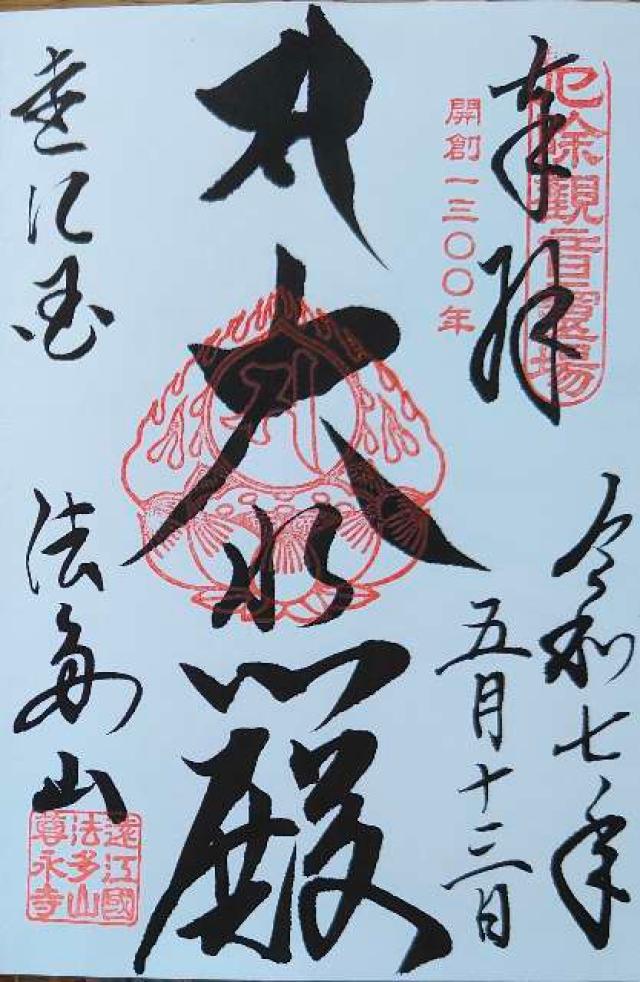 奉拝
厄除觀音霊場
開創一三〇〇年
令和七年
五月十三日
大悲殿
遠江国
法多山
遠江國
法多山
尊永寺